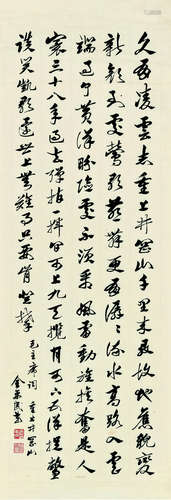 久有凌雲志重上井岡山千里來尋故地舊貌變
新顏到處鶯歌燕舞更有潺潺流水高路入雲
端過了黃洋界險處不須看風雷動旌旗奮是人
寰三十八年過去彈指一揮間可上九天攬月可下五洋捉鱉
談笑凱歌還世上無難事只要肯登攀
毛主席詞 重上井岡山
金 民書